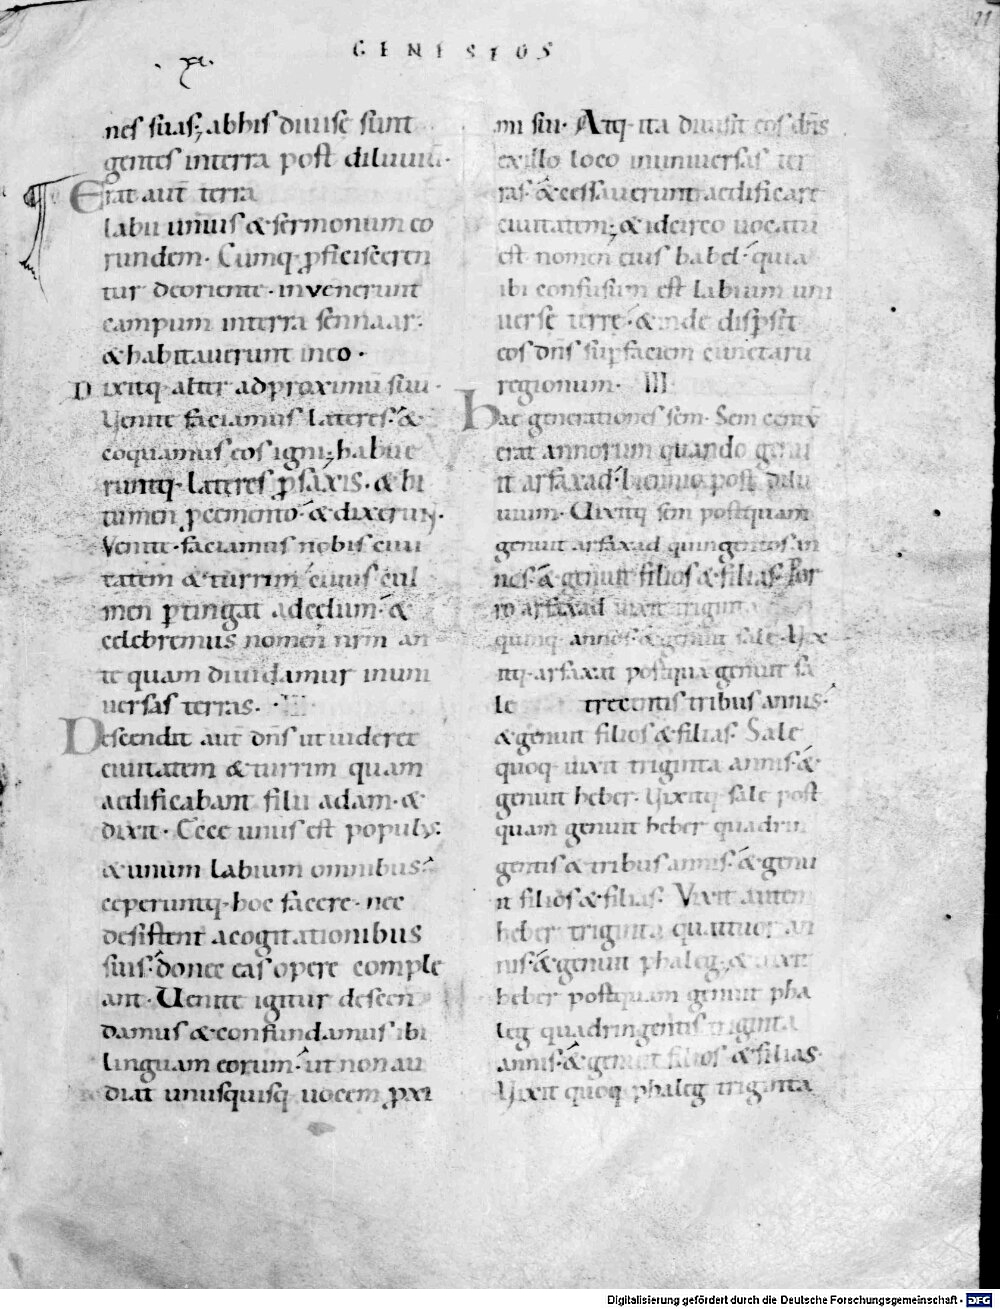 11
GENESEOS
xi.
nes suas; ab his diuise sunt
gentes interra post diluuiu.
Erat aut terra
labii unius & sermonum eo
rundem. Cumq. pficiseeren
tur deoriente. invenerunt
campum interra sennaar.
& habitauerunt ineo.
Dixitq. alter adproximu suu.
Venite faciamus lateres. &
coquamus eos igni; habue
runtq. lateres p saxis. & bi
tumen pcemento. & dixerunt.
Venite. faciamus nobis ciui
tatem & turrim cuius cul
men ptingat adcelum. &
celebremus nomen nrm an
te quam diuidamur inuni
uersas terras. III
Descendit aut dns ut uideret
ciuitatem & turrim quam
aedificabant filii adam. &
dixit. Ecce unus est populus.
& unum labium omnibus.
ceperuntq. hoc facere. nec
desistent acogitationibus
suis. donec eas opere comple
ant. Uenite igitur descen
damus & confundamus ibi
linguam eorum. ut non au
diat unusquisq. uocem pxi
mi sui. Atq. ita diuisit eos dns
exillo loco inuniuersas ter
ras. & cessauerunt aedificare
ciuitatem; & idcirco uocatu
est nomen eius babel. quia
ibi confusum est labium uni
uerse terre. & inde dispsit
eos dns supfaciem cunctaru
regionum. III.
hae generationes sem. Sem centu
erat annorum quando genu
it arfaxad. biennio post dilu
uium. Uixitq. sem postquam
genuit arfaxad quingentos an
nos. & genuit filios & filias. Por
ro arfaxad uixit triginta
quinq. annos. & genuit sale. Vix
itq. arfaxat postqua genuit sa
le trecentis tribus annis.
& genuit filios & filias. Sale
quoq. uixit triginta annis. &
genuit heber. Uixitq. sale post
quam genuit heber quadrin
gentis & tribus annis. & genu
it filios & filias. Vixit autem
heber triginta quattuor an
nis. & genuit phaleg. & uixit
heber postquam genuit pha
leg quadringentis triginta
annis. & genuit filios & filias.
Vixit quoq. phaleg triginta
Digitalisierung gefördert durch die Deutsche Forschungsgemeinschaft - DFG